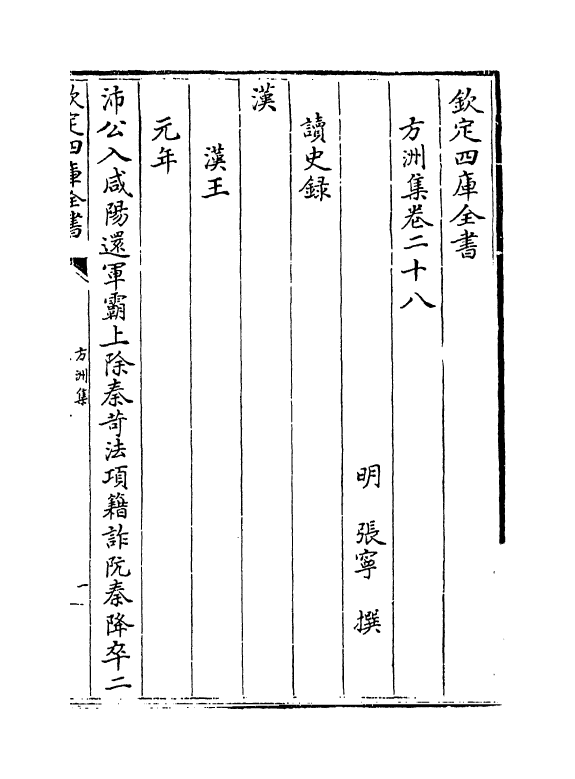 欽定四庫全書
方洲集卷二十八
明 張寧 撰
讀史録
漢
漢王
元年
沛公入咸陽還軍霸上除秦苛法項籍詐阬秦降卒二
欽定四庫全書
方洲集
一